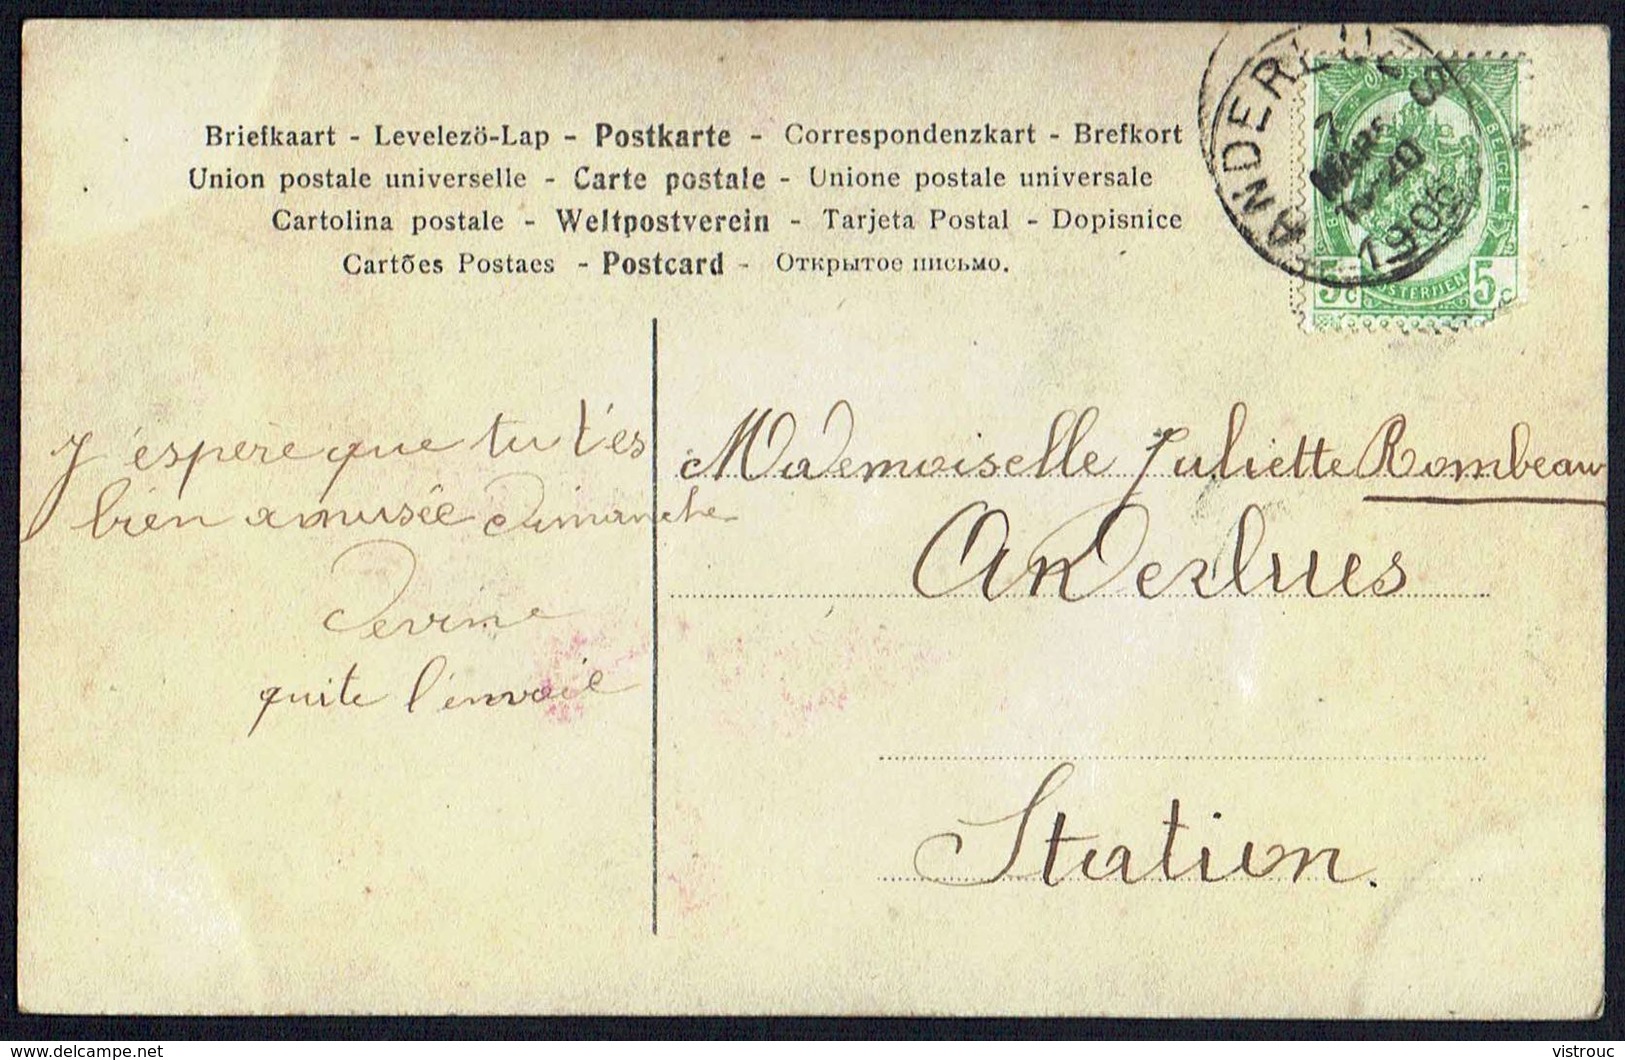 Briefkaart - Levelezö-Lap - Postkarte - Correspondenzkart - Brefkort
Union postale universelle - Carte postale - Unione postale universale
Cartolina postale - Weltpostverein - Tarjeta Postal - Dopisnice
Cartões Postaes - Postcard - Открытое письмо.
ANDERLU
7
MARS
1905
BELGIE
5c
5c
J'espère que tu t'es
bien amusée dimanche
quite l'envoie
Mademoiselle Juliette Rombeaux
Anderlues
Station.
vistrouc